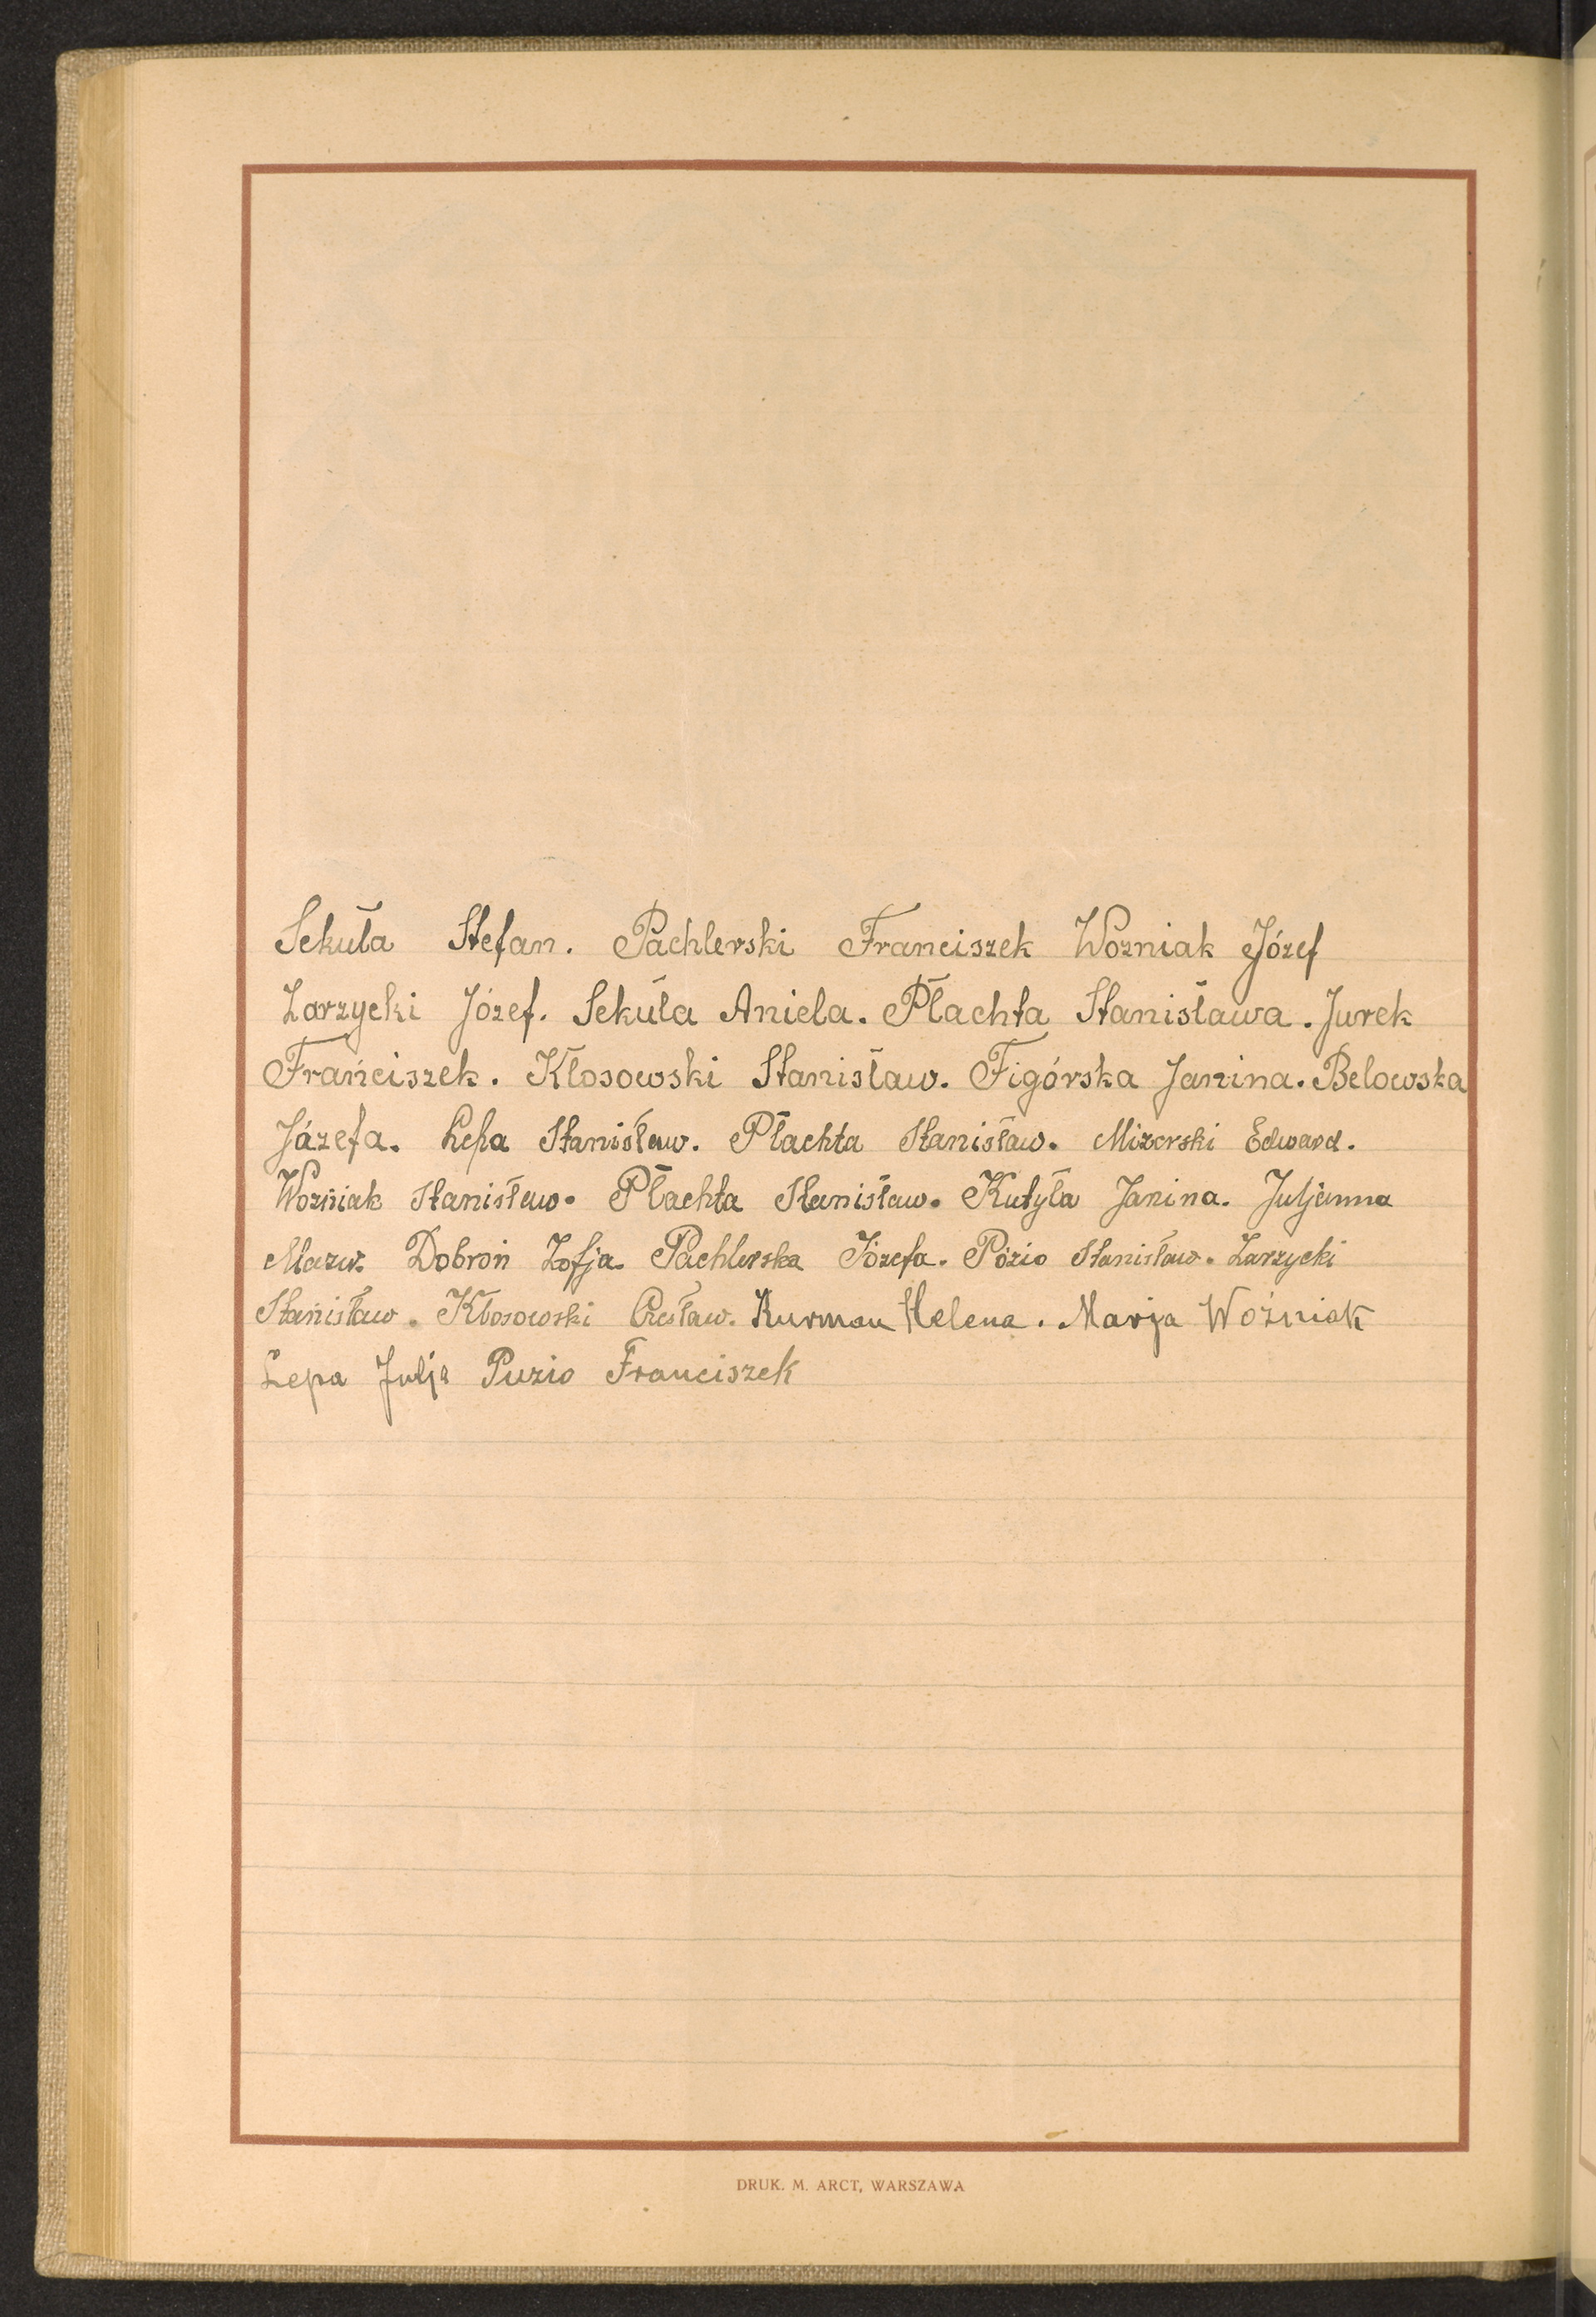 Sekuła Stefan. Pachlerski Franciszek Wozniak Józef
Zarzycki Józef. Sekuła Aniela. Płachta Stanisława. Jurek
Franciszek. Kłosowski Stanisław. Figórska Janina. Belowska
Józefa. Lepa Stanisław. Płachta Stanisław. Mizerski Edward.
Woźniak Stanisław. Płachta Stanisław. Kutyła Janina. Juljanna
Mazur. Dobroń Zofja. Pachlerska Józefa. Pózio Stanisław. Zarzycki
Stanisław. Kłosowski Czesław. Kurman Helena. Marja Woźniak
Lepa Julja Puzio Franciszek
DRUK. M. ARCT, WARSZAWA